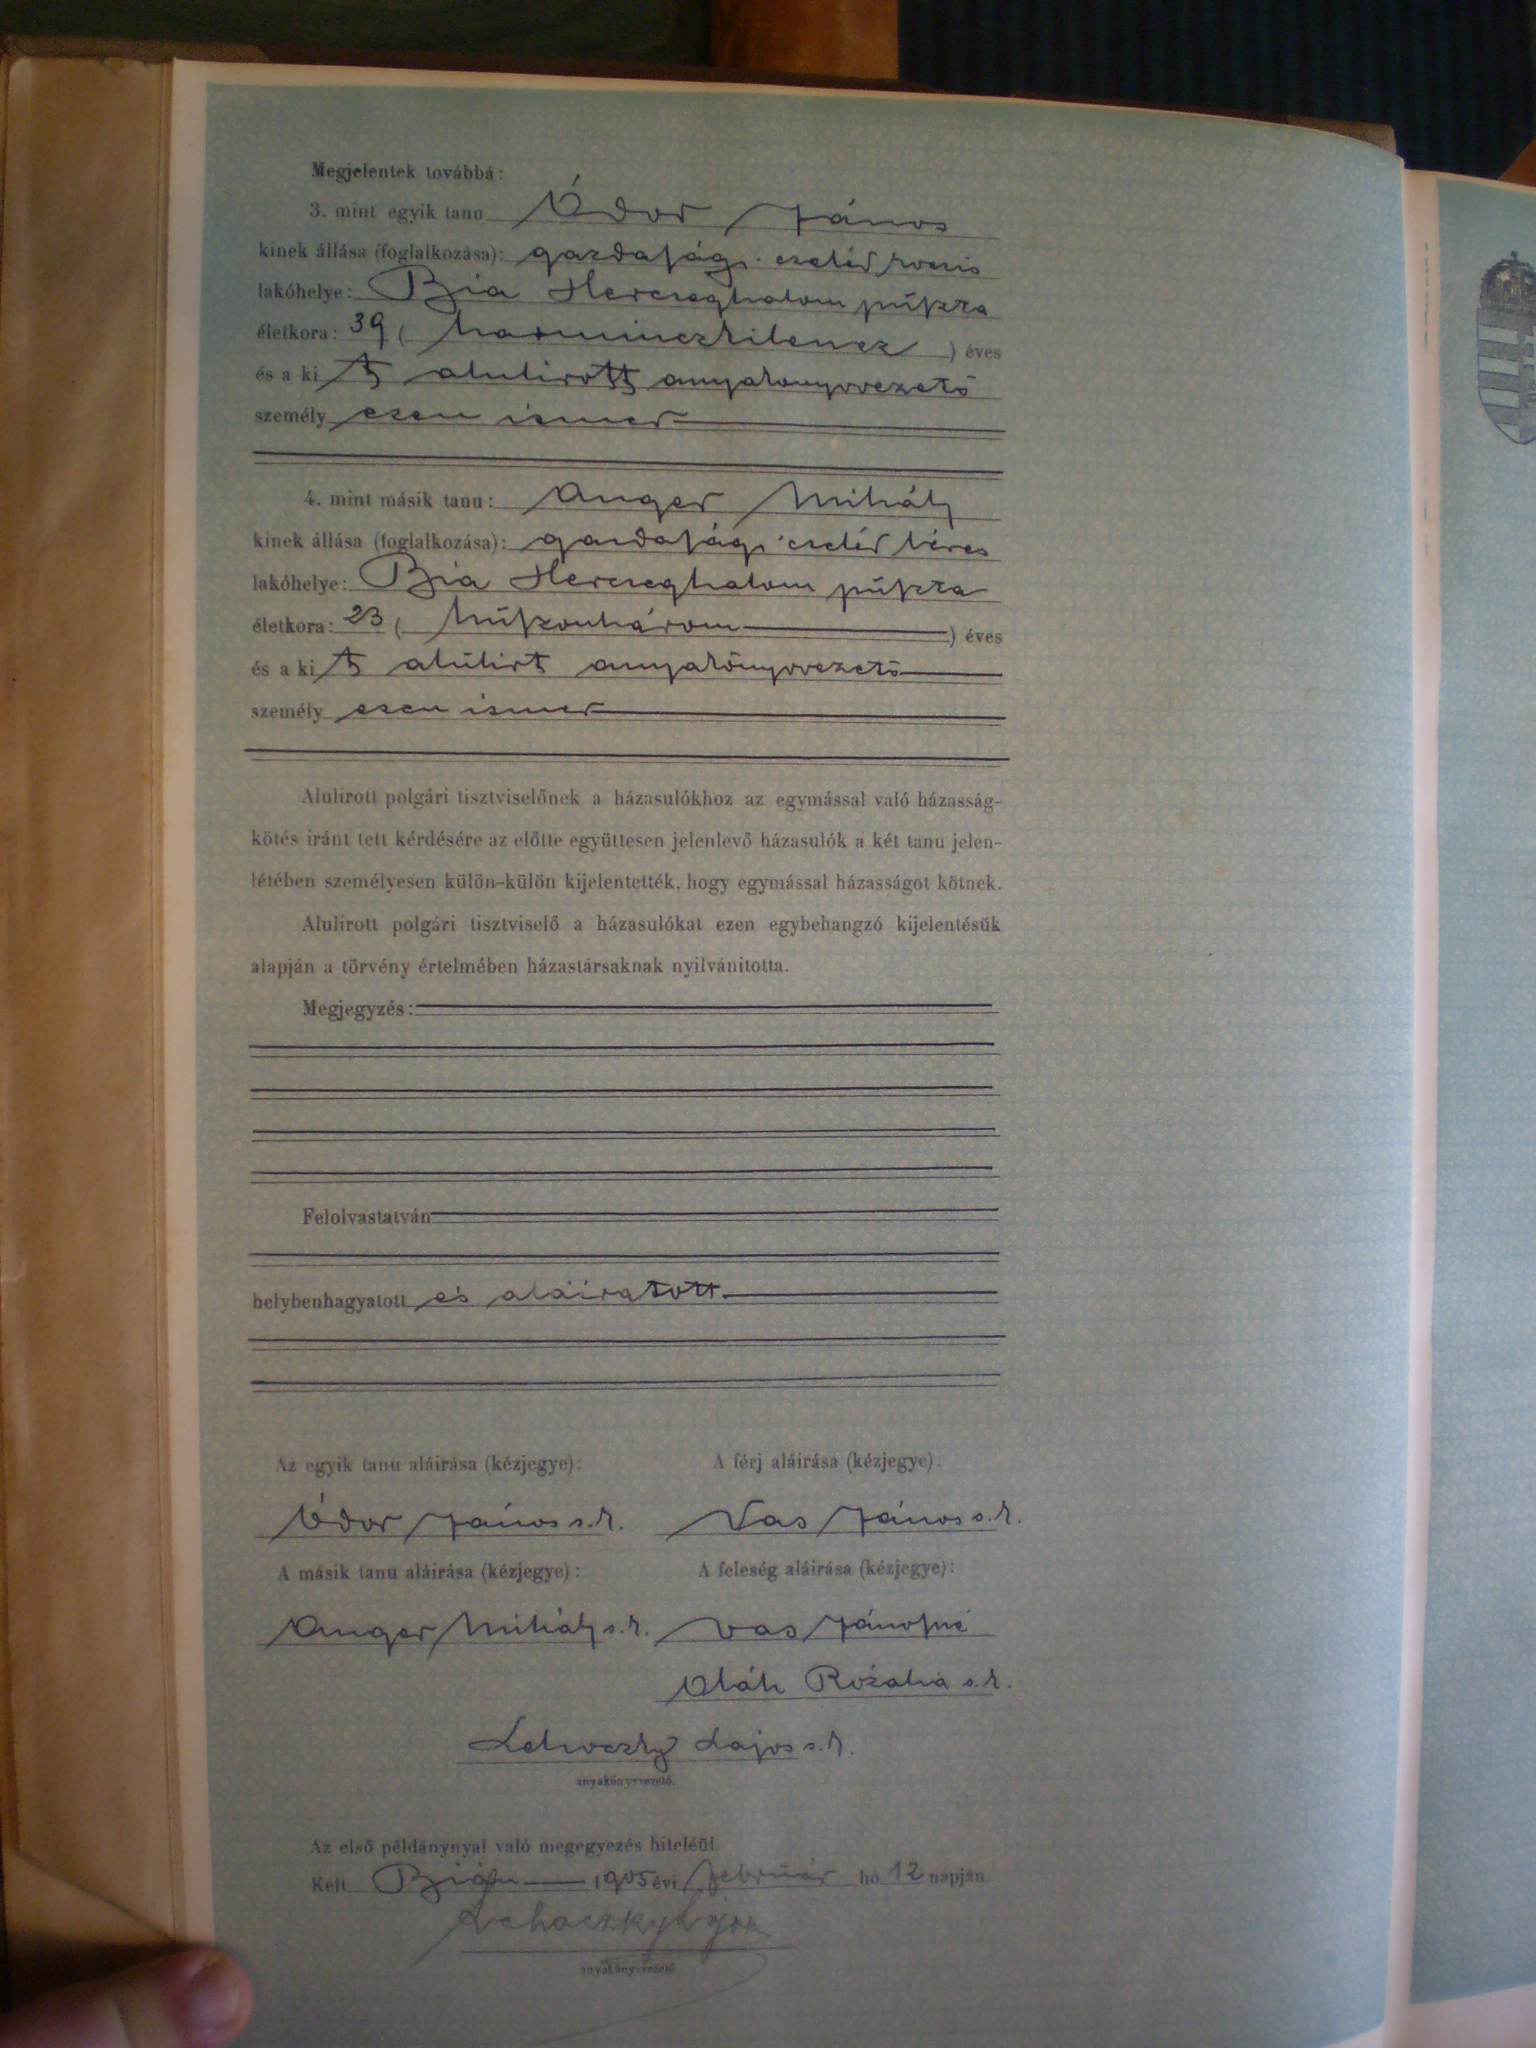 Megjelentek továbbá:
3. mint egyik tanu Ódor János
kinek állása (foglalkozása): gazdasági cseléd kocsis
lakóhelye: Bia Herczeghalom puszta
életkora: 39 ( harminczkilencz ) éves
és a ki t alulirott anyakönyvvezető
személyesen ismer
4. mint másik tanu: Anger Mihály
kinek állása (foglalkozása): gazdasági cseléd béres
lakóhelye: Bia Herczeghalom puszta
életkora: 23 ( húszonhárom ) éves
és a ki t alúlirt anyakönyvvezető
személyesen ismer
Alulirott polgári tisztviselőnek a házasulókhoz az egymással való házasság-
kötés iránt tett kérdésére az előtte együttesen jelenlevő házasulók a két tanu jelen-
létében személyesen külön-külön kijelentették, hogy egymással házasságot kötnek.
Alulirott polgári tisztviselő a házasulókat ezen egybehangzó kijelentésük
alapján a törvény értelmében házastársaknak nyilvánitotta.
Megjegyzés:
Felolvastatván
helybenhagyatott és aláiratott.
Az egyik tanu aláirása (kézjegye): A férj aláirása (kézjegye):
Ódor János s.k. Vas János s.k.
A másik tanu aláirása (kézjegye): A feleség aláirása (kézjegye):
Anger Mihály s.k. Vas Jánosné
Oláh Rozália s.k.
Lehoczky Lajos s.k.
anyakönyvvezető.
Az első példánynyal való megegyezés hiteléül.
Kelt Bián 1905 évi február hó 12 napján.
Lehoczky Lajos
anyakönyvvezető.